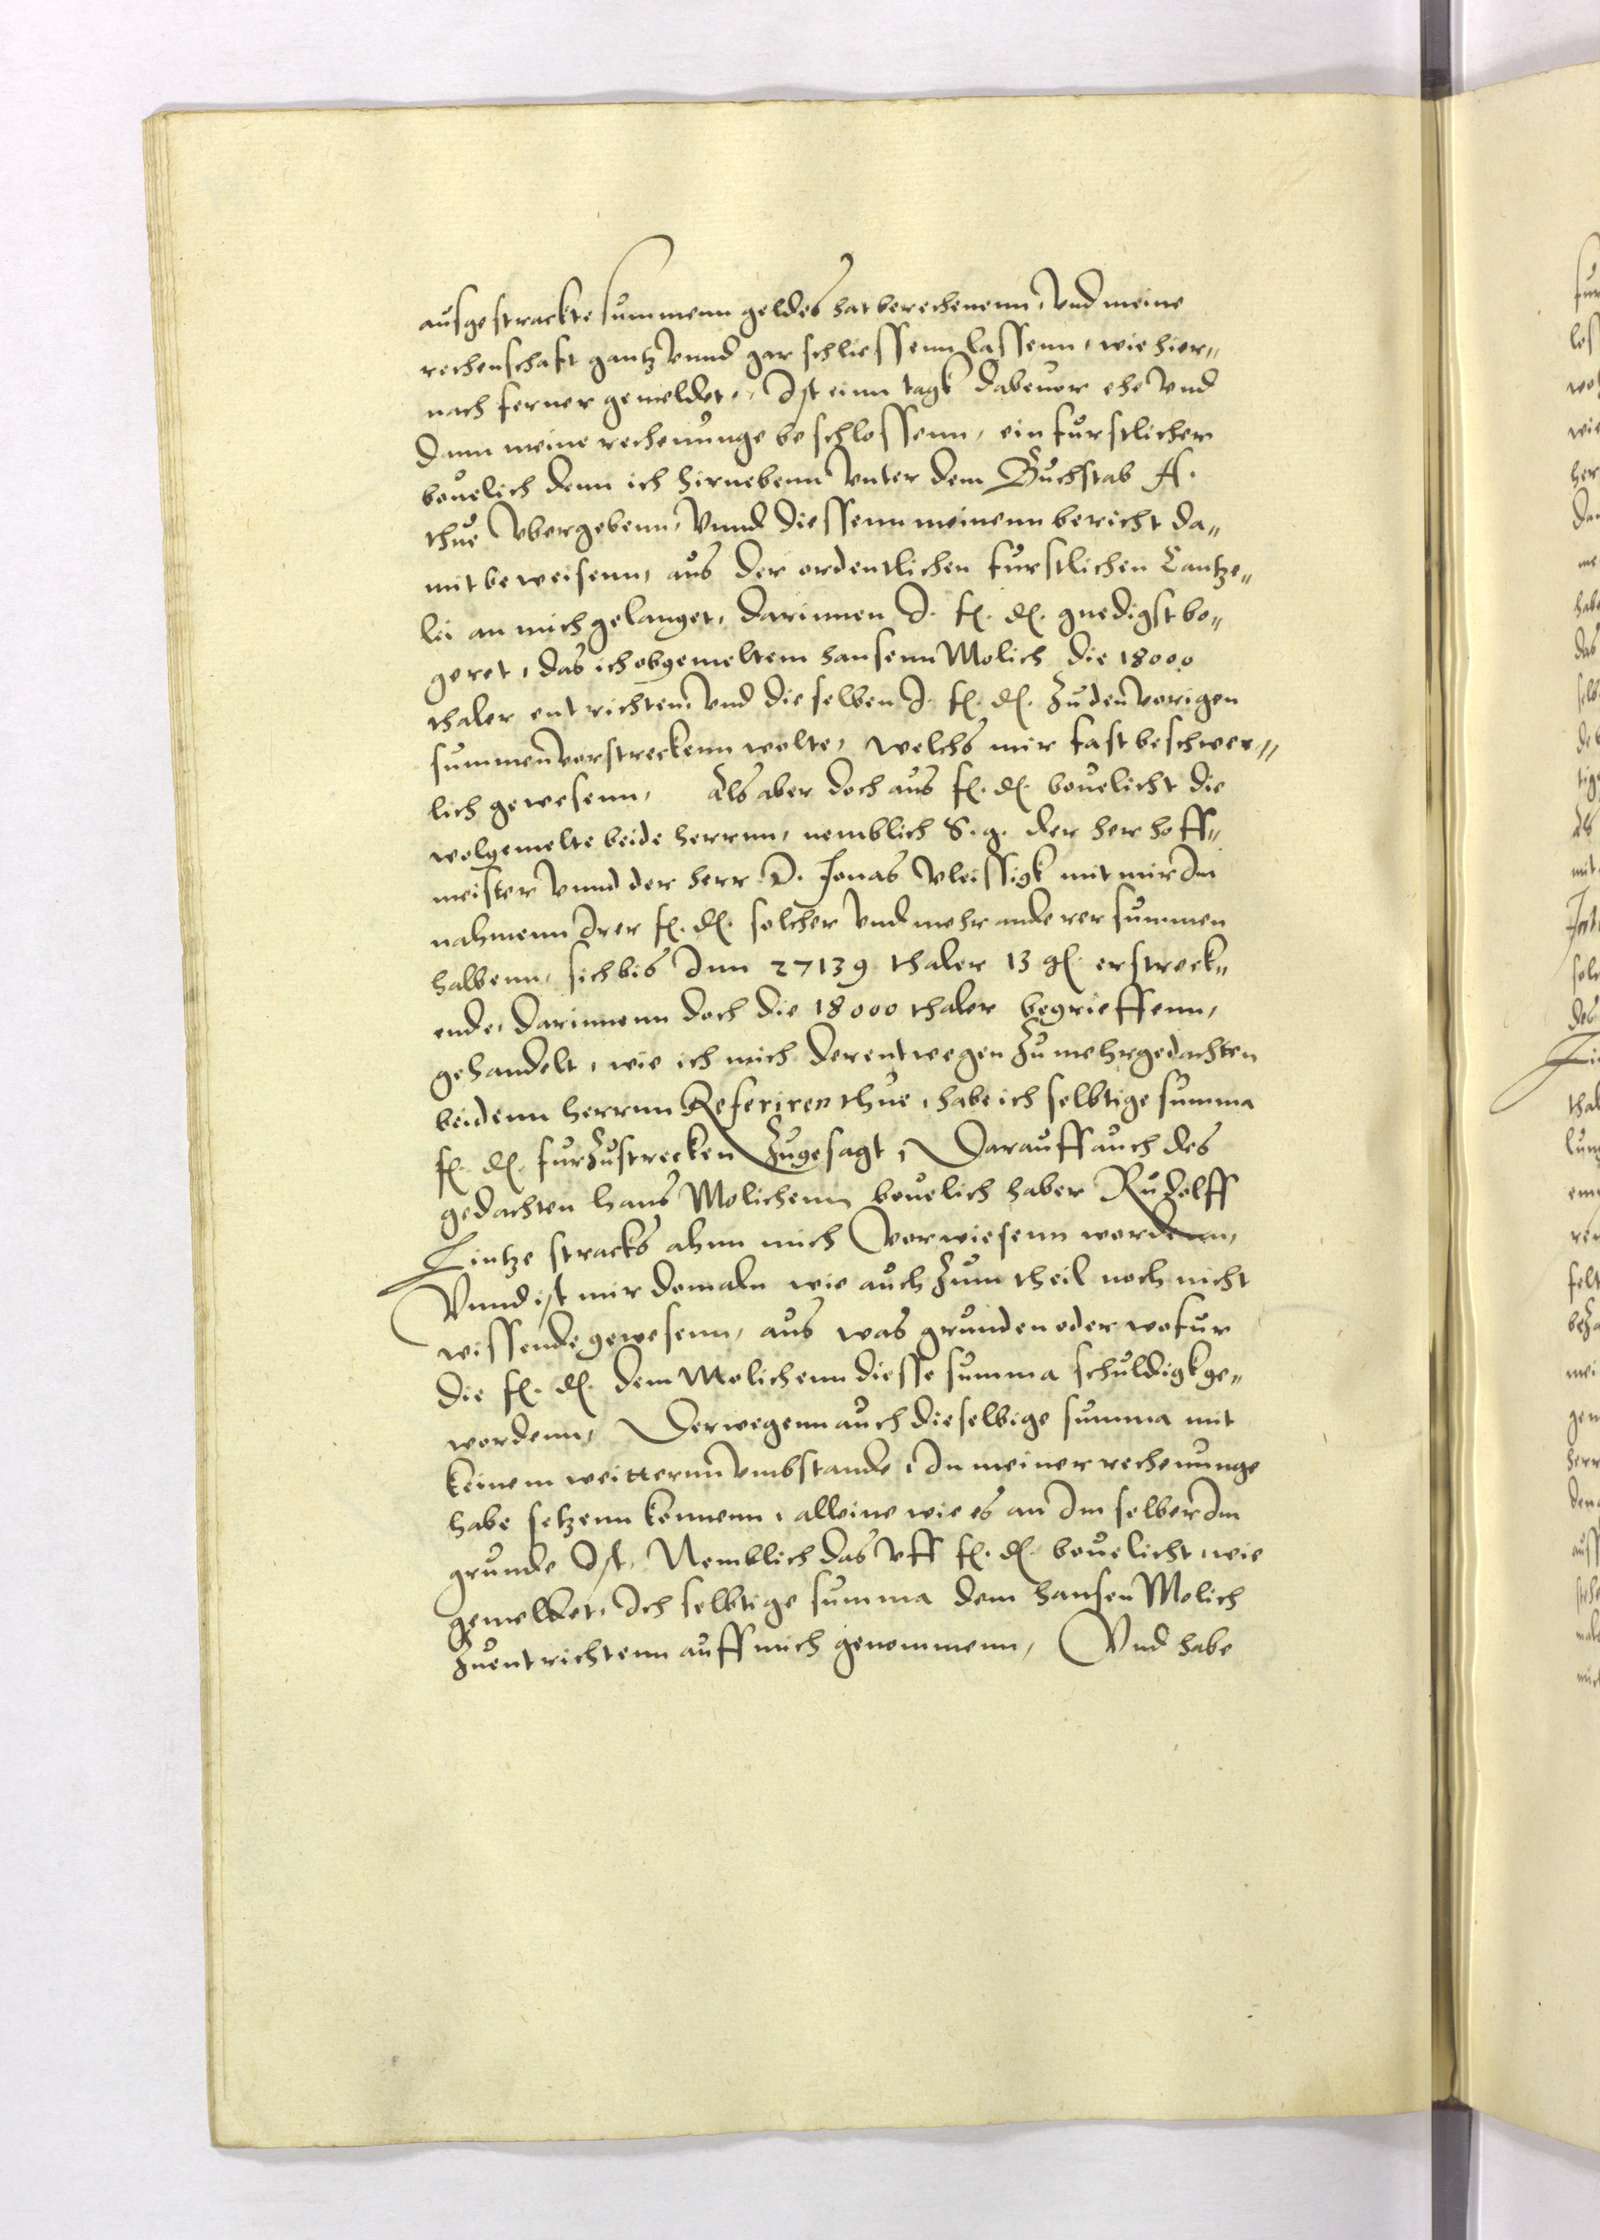 ausgestrackte summenn geldes hat berechenenn, Vnd meine
rechenschaft gantz vnnd gar schliessenn lassenn, wie hier„
nach ferner gemeldet, Ist einn tagk dabeuor ehe Vnd
dann meine rechenunge beschlossenn, ein furstlicher
beuelich denn ich hirnebenn Vnter dem Buchstab A.
thue Vbergebenn, Vnnd diessenn meinenn bericht da„
mit beweisenn, aus der ordentlichen furstlichen Cantze„
lei an mich gelanget, darinnen I. f. d. gnedigst be„
geret, das ich obgemeltem hansenn Molich die 18000
thaler entrichten, Vnd dieselben I. f. d. Zu den vorigen
summen vorstreckenn wolte, welchs mir fast beschwer„
lich gewesenn, Als aber doch aus f. d. beuelicht die
wolgemelte beide herrnn, nemblich S. g. der her hoff„
meister vnnd der herr D. Jonas Vleissigk mit mir Im
nahmenn Irer f. d. solcher Vnd mehr anderer summen
halbenn, sich bis Inn 27139 thaler 13 gl. erstreck„
ende, darinnenn doch die 18000 thaler begrieffenn,
gehandelt, wie ich mich derentwegen Zu mehrgedachten
beidenn herrnn Referiren thue, habe ich selbtige summa
f. d. furZustrecken Zugesagt, Darauff auch des
gedachten hans Molichenn beuelich haber Rudolff
Lintze stracks ahnn mich Vorwiesenn wordenn,
Vnnd ist mir domaln wie auch Zum theil noch nicht
wissende gewesenn, aus was grunden oder wofur
die f. d. dem Molichenn diesse summa schuldigk ge„
wordenn, Derwegenn auch dieselbige summa mit
keinem weitternn Vmbstande, In meiner rechenunge
habe setzenn konnenn, alleine wie es an Im selber Im
grunde Ist, Nemblich das Vff f. d. beuelicht, wie
gemeldet, Ich selbtige summa dem hansen Molich
Zuentrichtenn auff mich genommenn, Vnd habe